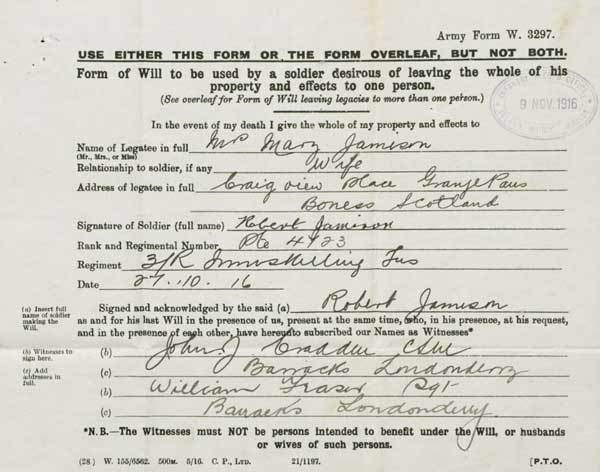 Army Form W. 3297.
USE EITHER THIS FORM OR THE FORM OVERLEAF, BUT NOT BOTH.
Form of Will to be used by a soldier desirous of leaving the whole of his
property and effects to one person.
(See overleaf for Form of Will leaving legacies to more than one person.)
9 NOV. 1916
In the event of my death I give the whole of my property and effects to
Name of Legatee in full Mrs Mary Jamison
(Mr., Mrs., or Miss)
Relationship to soldier, if any Wife
Address of legatee in full Craig view Place
Boness Scotland
Signature of Soldier (full name) Robert Jamison
Rank and Regimental Number Pte 4923
Regiment 3/R Inniskilling Fus
Date 27.10.16
Signed and acknowledged by the said (a) Robert Jamison
(a) Insert full name of soldier making the Will.
as and for his last Will in the presence of us, present at the same time, who, in his presence, at his request,
and in the presence of each other, have hereunto subscribed our Names as Witnesses*
(b) Witnesses to sign here.
(b) John J CSM
(c) Add addresses in full.
(c) Barracks Londonderry
(b) William Fraser Sgt
(c) Barracks Londonderry
*N.B.—The Witnesses must NOT be persons intended to benefit under the Will, or husbands
or wives of such persons.
(28) W. 155/6562. 500M. 5/16 C. P., LTD. 21/1197. [P.T.O.